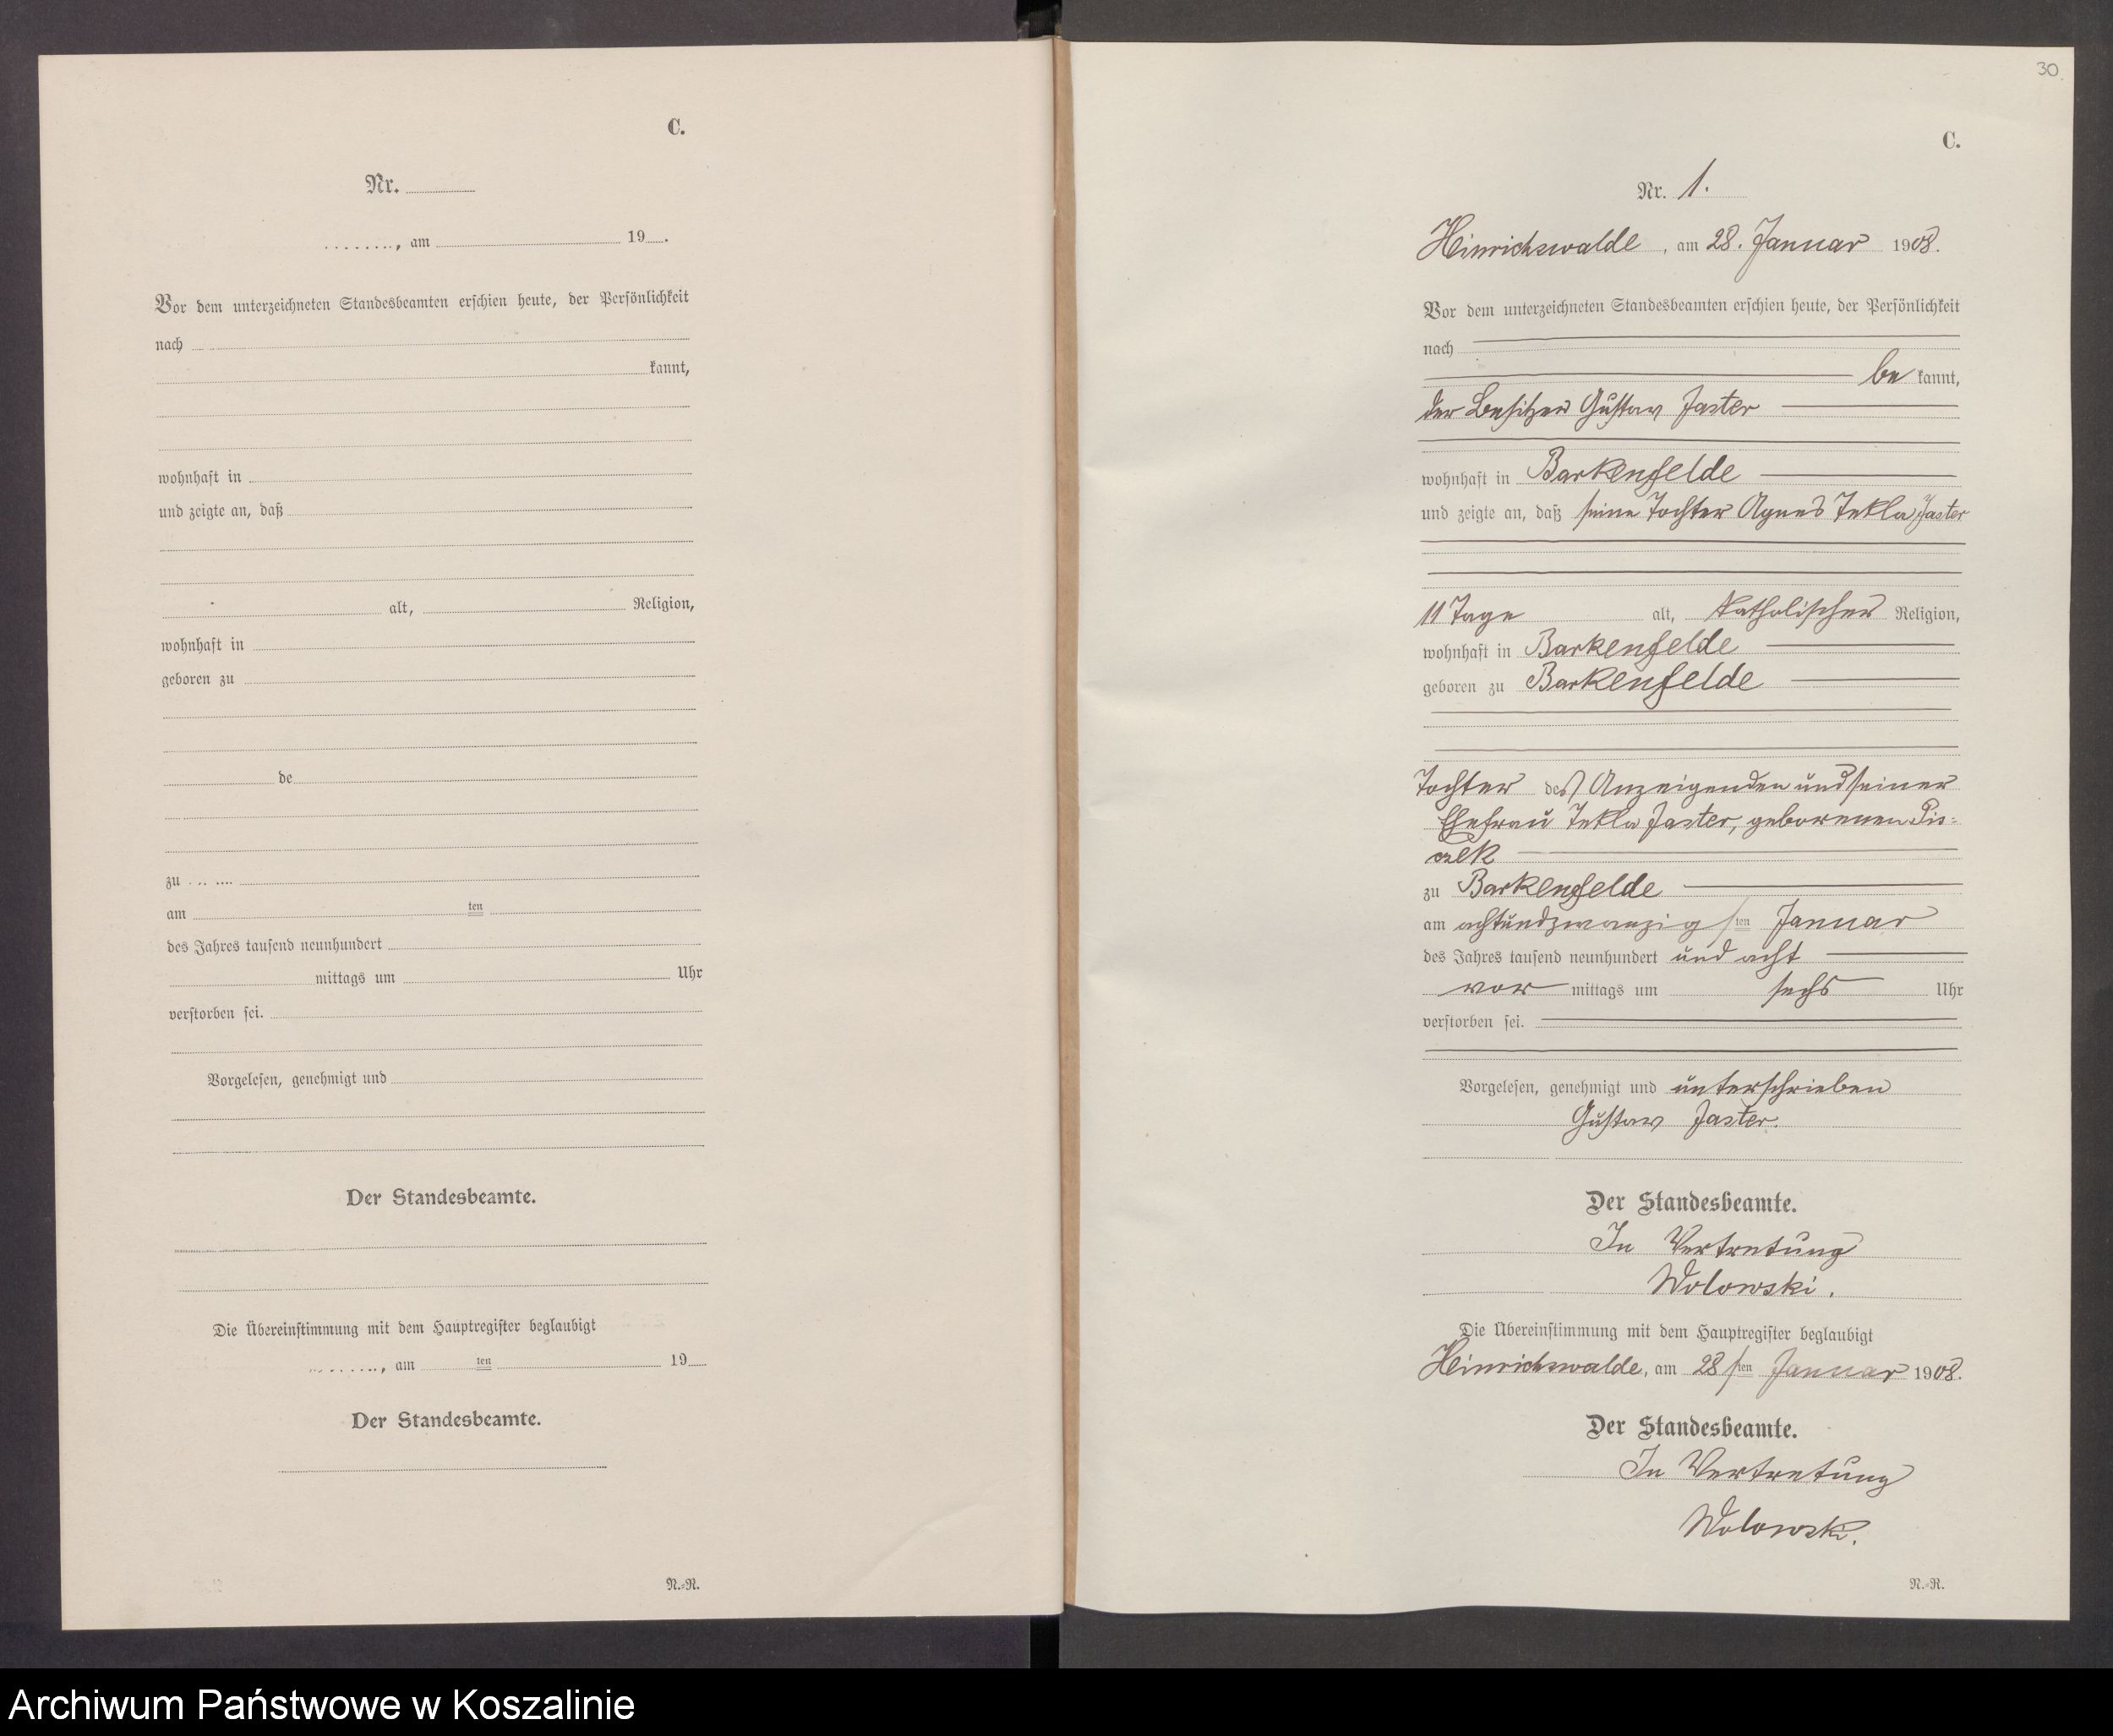 C.
Nr.
........, am 19 .
Vor dem unterzeichneten Standesbeamten erschien heute, der Persönlichkeit
nach
kannt,
wohnhaft in
und zeigte an, daß
alt, Religion,
wohnhaft in
geboren zu
de
zu
am ten
des Jahres tausend neunhundert
mittags um Uhr
verstorben sei.
Vorgelesen, genehmigt und
Der Standesbeamte.
Die Übereinstimmung mit dem Hauptregister beglaubigt
........, am ten 19
Der Standesbeamte.
N.-R.
30
C.
Nr. 1.
Hinrichswalde, am 28. Januar 1908.
Vor dem unterzeichneten Standesbeamten erschien heute, der Persönlichkeit
nach
be kannt,
der Besitzer Gustav Jaster
wohnhaft in Barkenfelde
und zeigte an, daß seine Tochter Agnes Tekla Jaster
11 Tage alt, katholischer Religion,
wohnhaft in Barkenfelde
geboren zu Barkenfelde
Tochter des Anzeigenden und seiner
Ehefrau Tekla Jaster, geborenen Pis-
czek
zu Barkenfelde
am achtundzwanzigsten Januar
des Jahres tausend neunhundert und acht
vor mittags um sechs Uhr
verstorben sei.
Vorgelesen, genehmigt und unterschrieben
Gustav Jaster.
Der Standesbeamte.
In Vertretung
Wolowski.
Die Übereinstimmung mit dem Hauptregister beglaubigt
Heinrichswalde, am 28sten Januar 1908.
Der Standesbeamte.
In Vertretung
Wolowski.
N.-R.
Archiwum Państwowe w Koszalinie